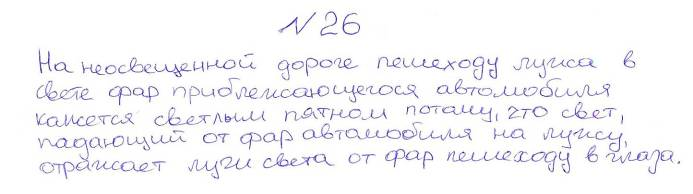 N 26
На неосвещенной дороге пешеходу лужа в
свете фар приближающегося автомобиля
кажется светлым пятном потому, что свет,
падающий от фар автомобиля на лужу,
отражает лучи света от фар пешеходу в глаза.